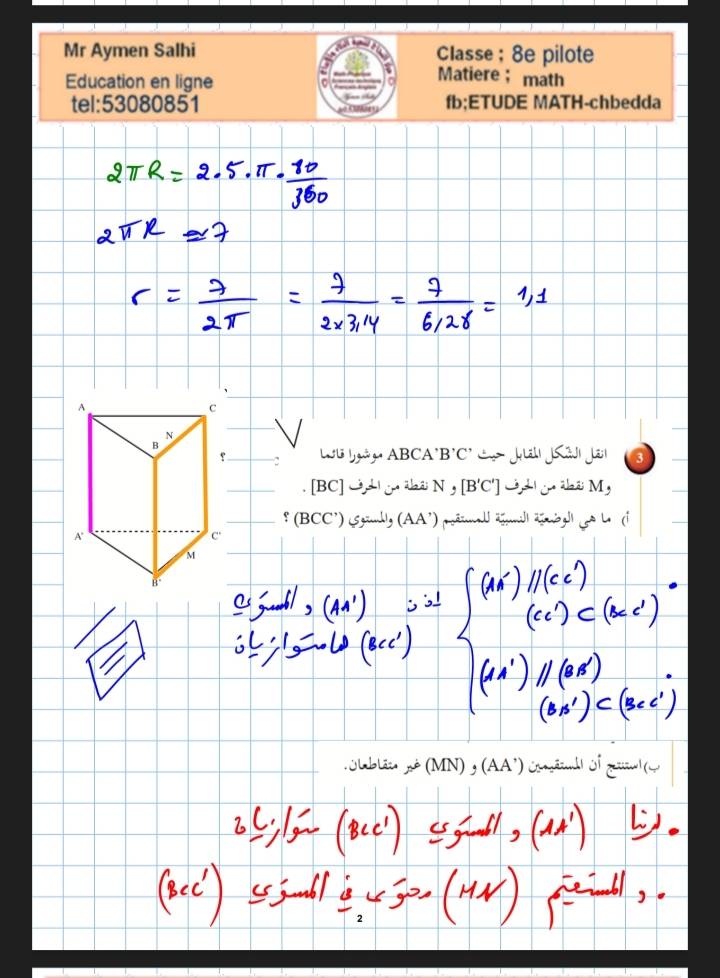 Mr Aymen Salhi
Education en ligne
tel:53080851
Classe ; 8e pilote
Matiere ; math
fb;ETUDE MATH-chbedda
2πR = 2.5.π.80/360
2πR ≃ 7
r = 7/2π = 7/2x3,14 = 7/6,28 = 1,1
A
C
N
B
A'
C'
M
B'
؟
3
انقل الشكل المقابل حيث ABCA'B'C' موشورا قائما
وM نقطة من الحرف [B'C'] و N نقطة من الحرف [BC] .
أ) ما هي الوضعيّة النسبيّة للمستقيم (AA') والمستوي (BCC') ؟
(AA') // (CC')
(CC') ⊂ (BCC')
(AA') // (BB')
(BB') ⊂ (BCC')
اذن (AA') و المستوي
(BCC') هما متوازيان
ب) استنتج أن المستقيمين (AA') و (MN) غير متقاطعان.
• لدينا (AA') و المستوي (BCC') متوازيان
• و المستقيم (MN) محتوى في المستوي (BCC')
2